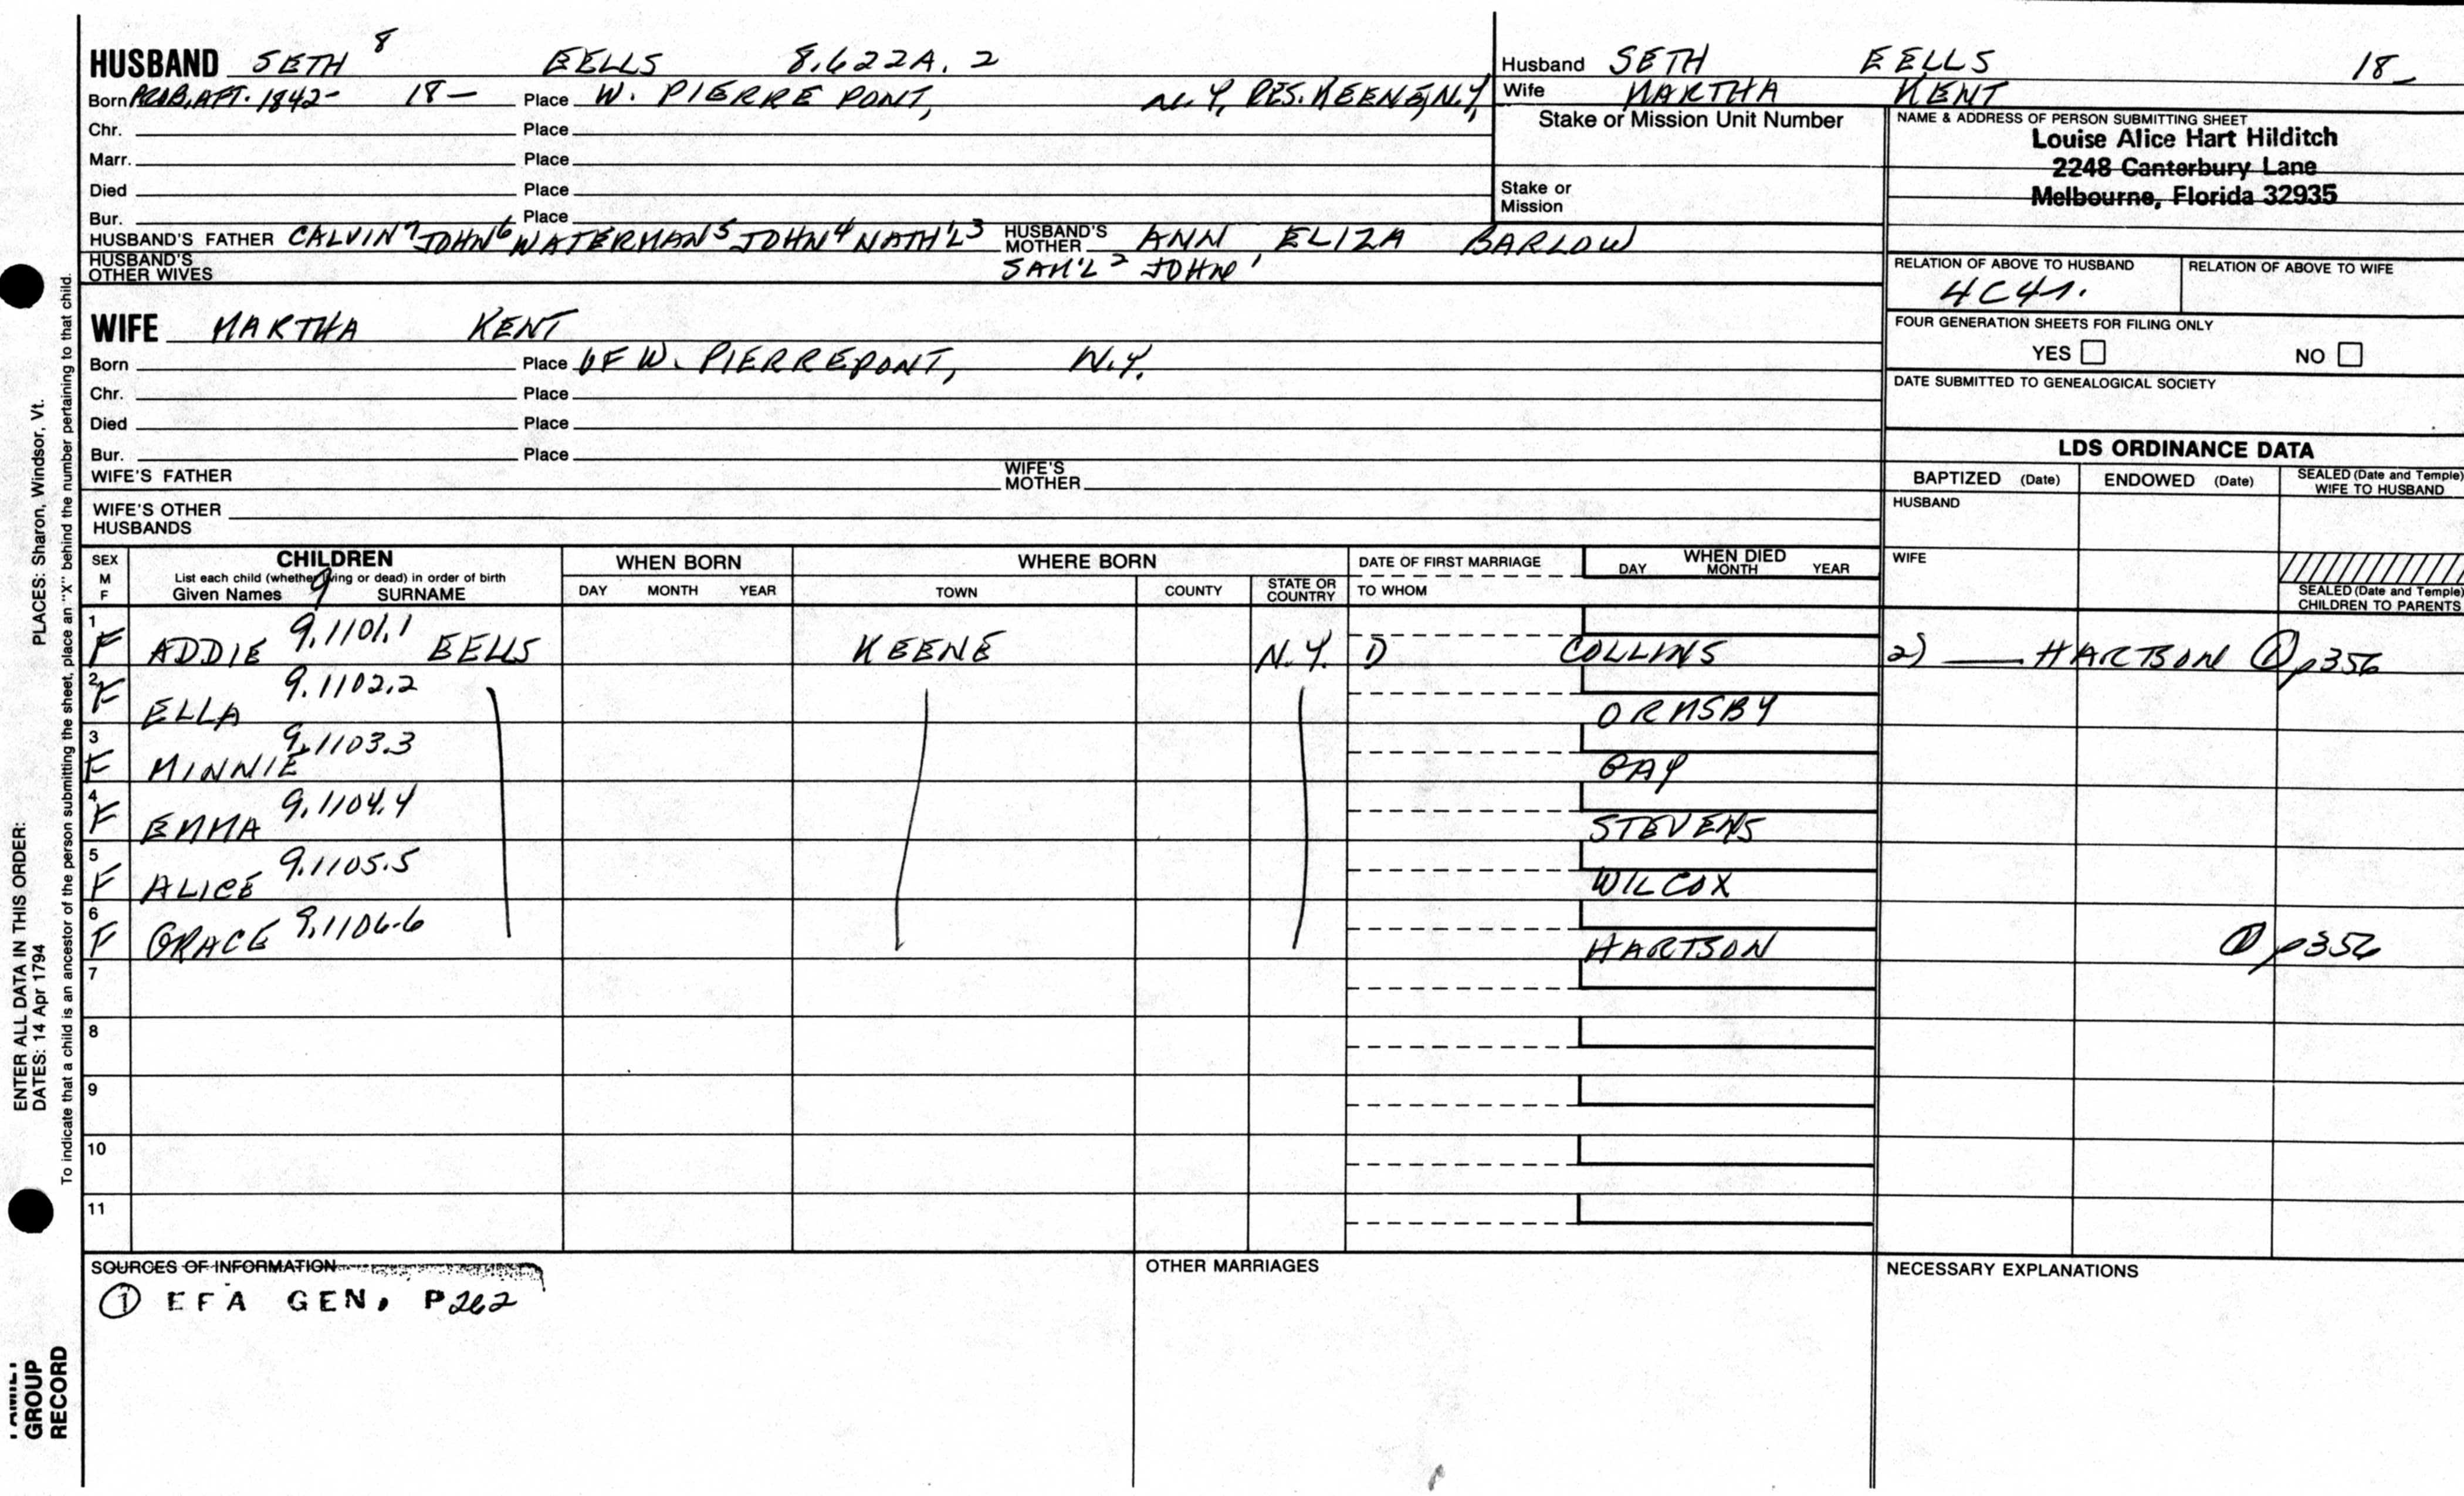 HUSBAND SETH 8 EELLS 8.622A.2
Born PROB. AFT. 1842- 18— Place W. PIERREPONT, N.Y. RES. KEENE, N.Y.
Chr. Place
Marr. Place
Died Place
Bur. Place
HUSBAND'S FATHER CALVIN7 JOHN6 WATERMAN5 JOHN4 NATH'L3 HUSBAND'S MOTHER ANN ELIZA BARLOW
HUSBAND'S OTHER WIVES SAM'L2 JOHN1
Husband SETH EELLS 18_
Wife MARTHA KENT
Stake or Mission Unit Number
Stake or Mission
NAME & ADDRESS OF PERSON SUBMITTING SHEET
Louise Alice Hart Hilditch
2248 Canterbury Lane
Melbourne, Florida 32935
RELATION OF ABOVE TO HUSBAND RELATION OF ABOVE TO WIFE
FOUR GENERATION SHEETS FOR FILING ONLY
YES NO
DATE SUBMITTED TO GENEALOGICAL SOCIETY
WIFE MARTHA KENT
Born Place OF W. PIERREPONT, N.Y.
Chr. Place
Died Place
Bur. Place
WIFE'S FATHER WIFE'S MOTHER
WIFE'S OTHER HUSBANDS
LDS ORDINANCE DATA
BAPTIZED (Date) ENDOWED (Date) SEALED (Date and Temple) WIFE TO HUSBAND
HUSBAND
WIFE
SEALED (Date and Temple) CHILDREN TO PARENTS
SEX M F
CHILDREN
List each child (whether living or dead) in order of birth
Given Names 9 SURNAME
WHEN BORN
DAY MONTH YEAR
WHERE BORN
TOWN COUNTY STATE OR COUNTRY
DATE OF FIRST MARRIAGE
TO WHOM
WHEN DIED
DAY MONTH YEAR
1 F ADDIE 9.1101.1 EELLS KEENE N.Y. D COLLINS 2) — HARTSON ① p356
2 F ELLA 9.1102.2 ORMSBY
3 F MINNIE 9.1103.3 GAY
4 F EMMA 9.1104.4 STEVENS
5 F ALICE 9.1105.5 WILCOX
6 F GRACE 9.1106.6 HARTSON ① p356
7
8
9
10
11
SOURCES OF INFORMATION
① EFA GEN. P262
OTHER MARRIAGES
NECESSARY EXPLANATIONS
ENTER ALL DATA IN THIS ORDER:
DATES: 14 Apr 1794 PLACES: Sharon, Windsor, Vt.
To indicate that a child is an ancestor of the person submitting the sheet, place an "X" behind the number pertaining to that child.
FAMILY
GROUP
RECORD